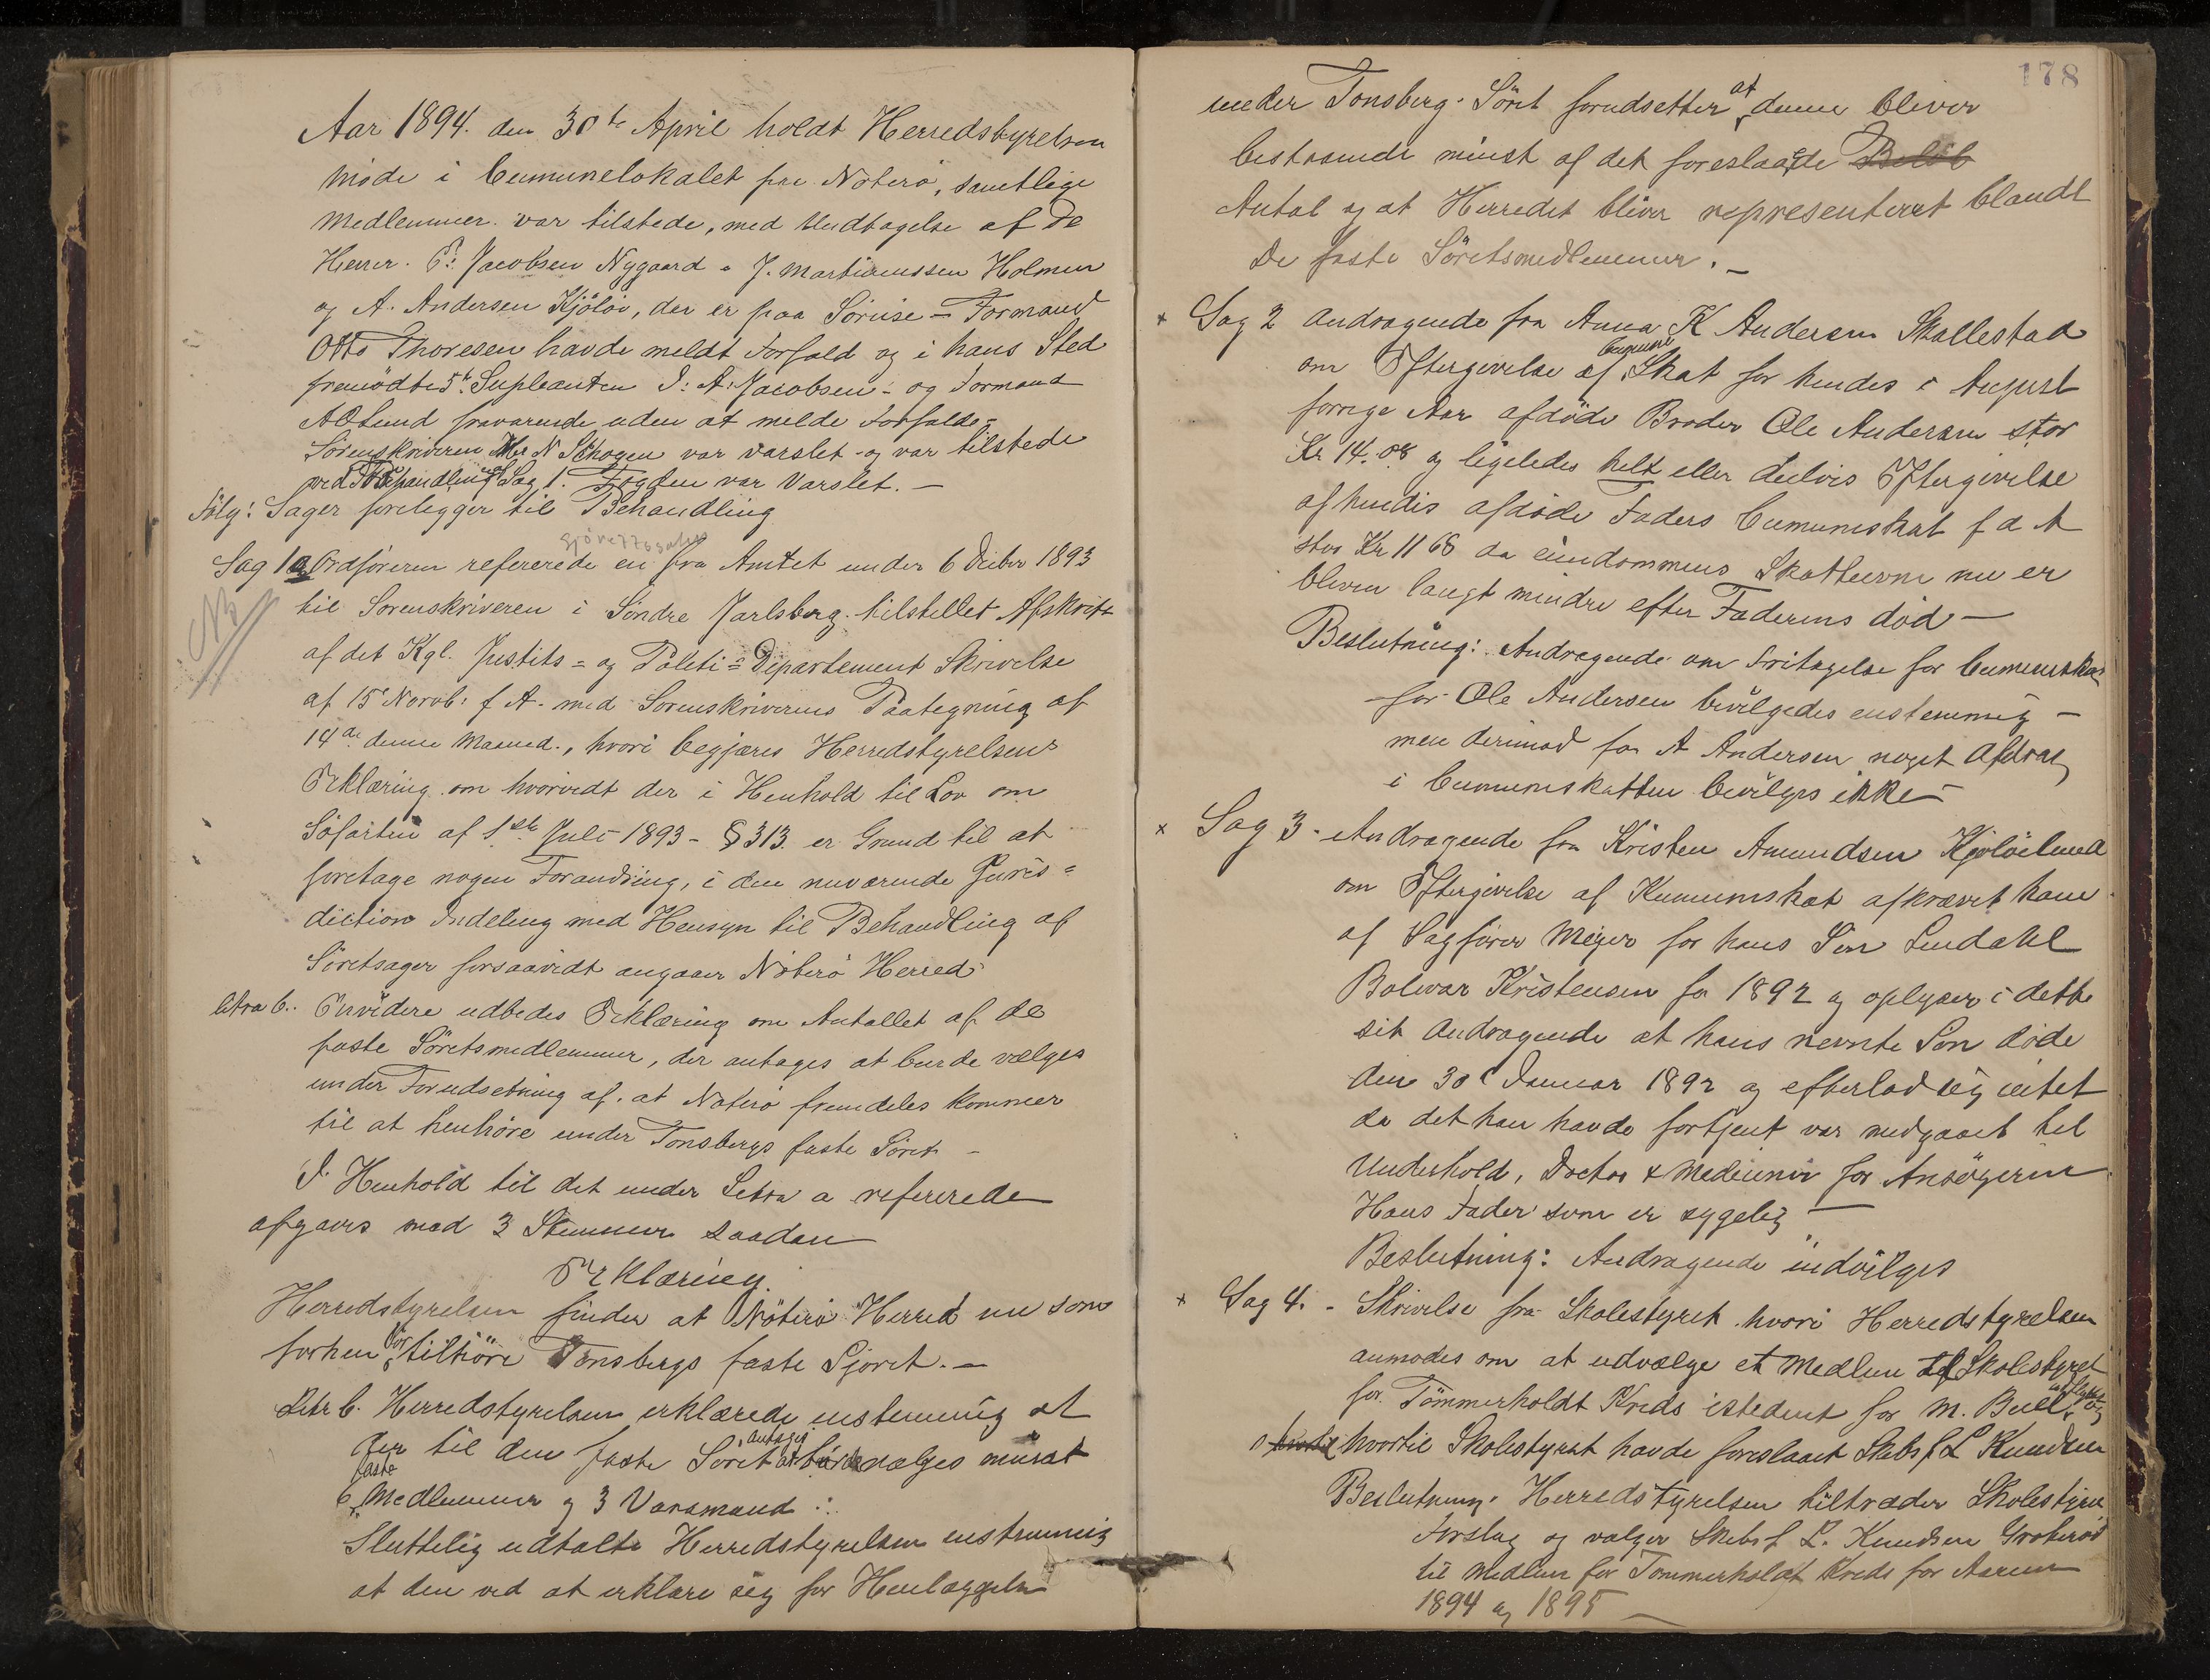 Aar 1894. den 30te April holdt Herredstyrelsen
Møde i Comunelokalet paa Nøterø, samtlige
Medlemmer var tilstede, med Undtagelse af De
Herrer. P: Jacobsen Nygaard - J. Martiniussen Holmen
og A. Andersen Kjøløø, der er paa Søreise = Formand
Otto Thoresen havde meldt Forfald og i hans Sted
fremødte 5te Supleanten I: A: Jacobsen - og Formand
fraværende uden at melde Forfald -
Sørenskriveren Hr N Schogen var varslet - og var tilstede
ved Behandling af Sag 1. Fogden var Varslet. -
Følg: Sager foreligger til Behandling
Sjøretssaker
Sag 1 a Ordføreren refererede en fra Amtet under 6 Decbr 1893
NB
til Sorenskriveren i Søndre Jarlsberg tilstellet Afskrift
af det Kgl. Justits = og Politi = Departement Skrivelse
af 15 Novb. f A. med Sorenskriverens Paategning af
14de denne Maaned., hvori begjæres Herredstyrelsens
Erklæring om hvorvidt der i Henhold til Lov om
Søfarten af 1ste Juli 1893 - § 313. er Grund til at
foretage nogen Forandring, i den nuværende Juris=
diction Indeling med Hensyn til Behandling af
Søretsager forsaavidt angaaer Nøterø Herred
litra b. Envidere udbedes Erklæring om Antallet af de
faste Søretsmedlemmer, der antages at burde vælges
under Forudsetning af. at Nøterø fremdeles kommer
til at henhøre under Tønsbergs faste Søret -
I Henhold til det under Letra a refererede
afgaves med 3 Stemmer saadan
Erklæring.
Herredstyrelsen finder at Nøterø Herred nu som
forhen bør tilhøre Tønsbergs faste Sjøret. -
Litr b. Herredstyrelsen erklærede enstemmig at
der til den faste Søret antages at burde vælges minst
6 faste Medlemmer og 3 Varamænd :
Sluttelig udtalte Herredstyrelsen enstemmig
at den ved at erklære sig for Henlæggelse
178
under Tønsberg Søret forudsetter at denne bliver
bestaaende minst af det foreslaaede Beløb
Antal og at Herredet bliver representeret blandt
De faste Søretsmedlemmer. -
x Sag 2 Andragende fra Anna K Andersen Skallestad
om Eftergivelse af Comune Skat for hendes i August
forrige Aar afdøde Broder Ole Andersen stor
Kr 14.08 og ligeledes helt eller delvis Eftergivelse
af hendes afdøde Faders Comuneskat f d A
stor Kr 11 68 da eiendommens Skatteevne nu er
bleven langt mindre efter Faderens død -
Beslutning: Andragende om Fritagelse for Comuneskat
for Ole Andersen bevilgedes enstemmig -
men derimod for A Andersen noget Afdrag
i Comuneskatten bevilges ikke -
x Sag 3 - Andragende fra Kristen Amundsen Kjøløelund
om Eftergivelse af Kumuneskat afkrævet ham
af Sagfører Meyer for hans Søn Lindahl
Bolevar Kristensen for 1892 og oplyser i dette
sit Andragende at hans nevnte Søn døde
den 30te Januar 1892 og efterlod sig intet
da det han havde fortjent var medgaaet til
Underhold, Doctor & Medicener for Ansøgeren
Hans Fader som er sygelig -
Beslutning: Andragende indvilges
x Sag 4. - Skrivelse fra Skolestyret hvori Herredstyrelsen
anmodes om at udvælge et Medlem til Skolestyret
for Tømmerholdt Kreds istedent for M. Bull
hvortil Skolestyret havde foreslaaet Skibsf L Knudsen
Beslutning. Herredstyrelsen tiltræder Skolestyrets
Forslag og vælger Skibsf L. Knudsen Grøterød
til Medlem for Tømmerholdt Kreds for Aarene
1894 og 1895 -